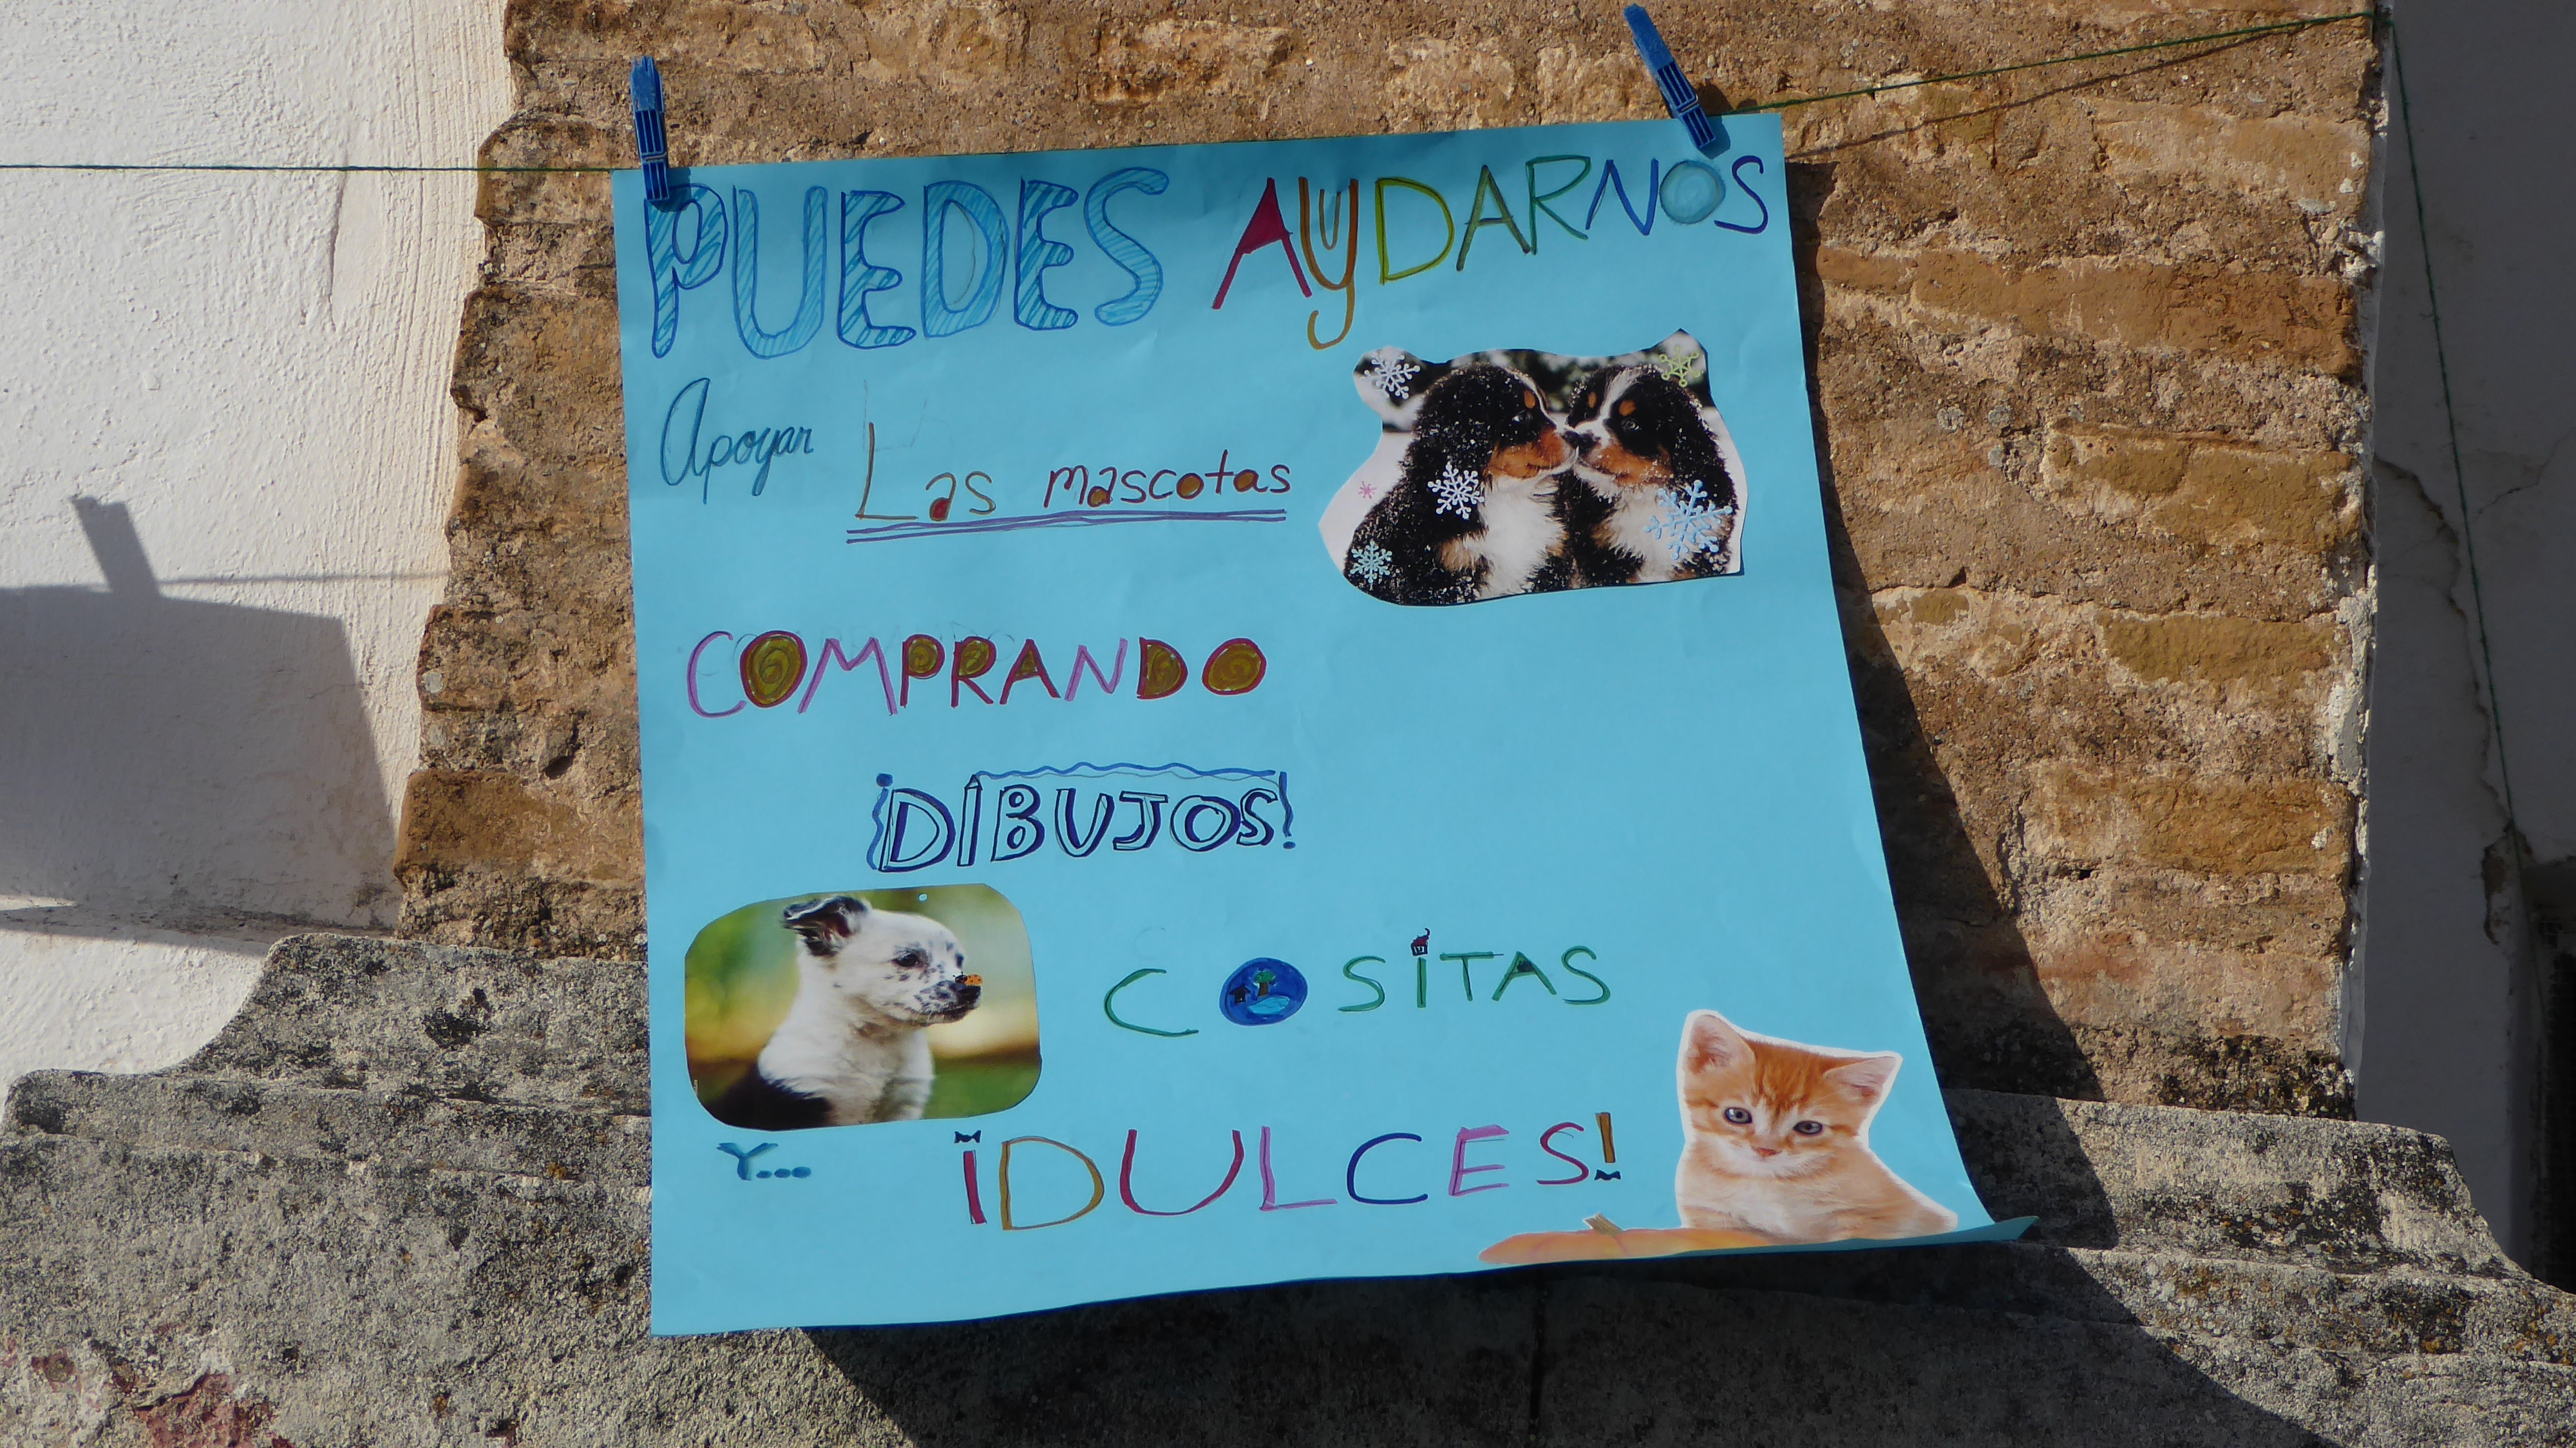 PUEDES AYDARNOS
Apoyar Las mascotas
COMPRANDO
¡DIBUJOS!
COSITAS
Y... ¡DULCES!